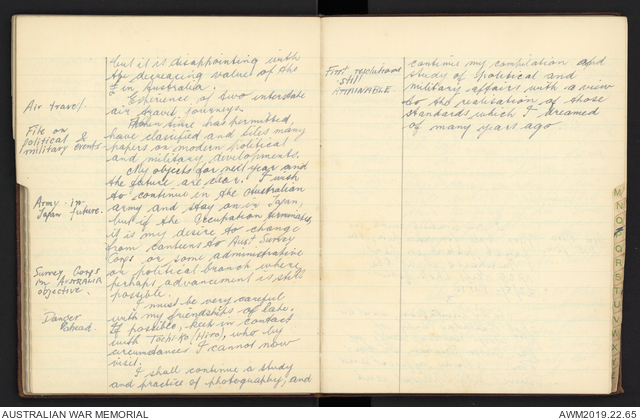 but it is disappointing with
the decreasing value of the
£ in Australia.
Air travel.
Experience of two interstate
air travel journeys.
File on
political &
military events
When time has permitted,
have classified and files many
papers on modern political
and military developments.
My objects for next year and
the future are clear. I wish
Army in
Japan future.
to continue in the Australian
army and stay on in Japan,
but if the Occupation terminates,
it is my desire to change
from canteens to Aust Survey
Corps or some administrative
Survey Corps
in AUSTRALIA
objective.
or political branch where
perhaps advancement is still
possible.
I must be very careful
Danger
Ahead.
with my friendships of late.
If possible, keep in contact
with Tochiko (Hiro), who by
circumstances I cannot now
visit.
I shall continue a study
and practice of photography, and
First resolutions
still
ATTAINABLE.
continue my compilation and
study of political and
military affairs with a view
to the realisation of those
standards which I dreamed
of many years ago
M
N
O
P
Q
R
S
T
U
V
W
X
AUSTRALIAN WAR MEMORIAL
AWM2019.22.65